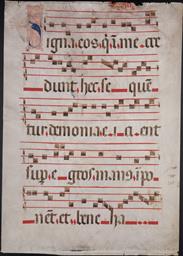 Signa eos q̄ i me cre
dunt hec se quē
tur demonia e i ci ent
sup e gros manꝰ ipo
nēt et bene ha